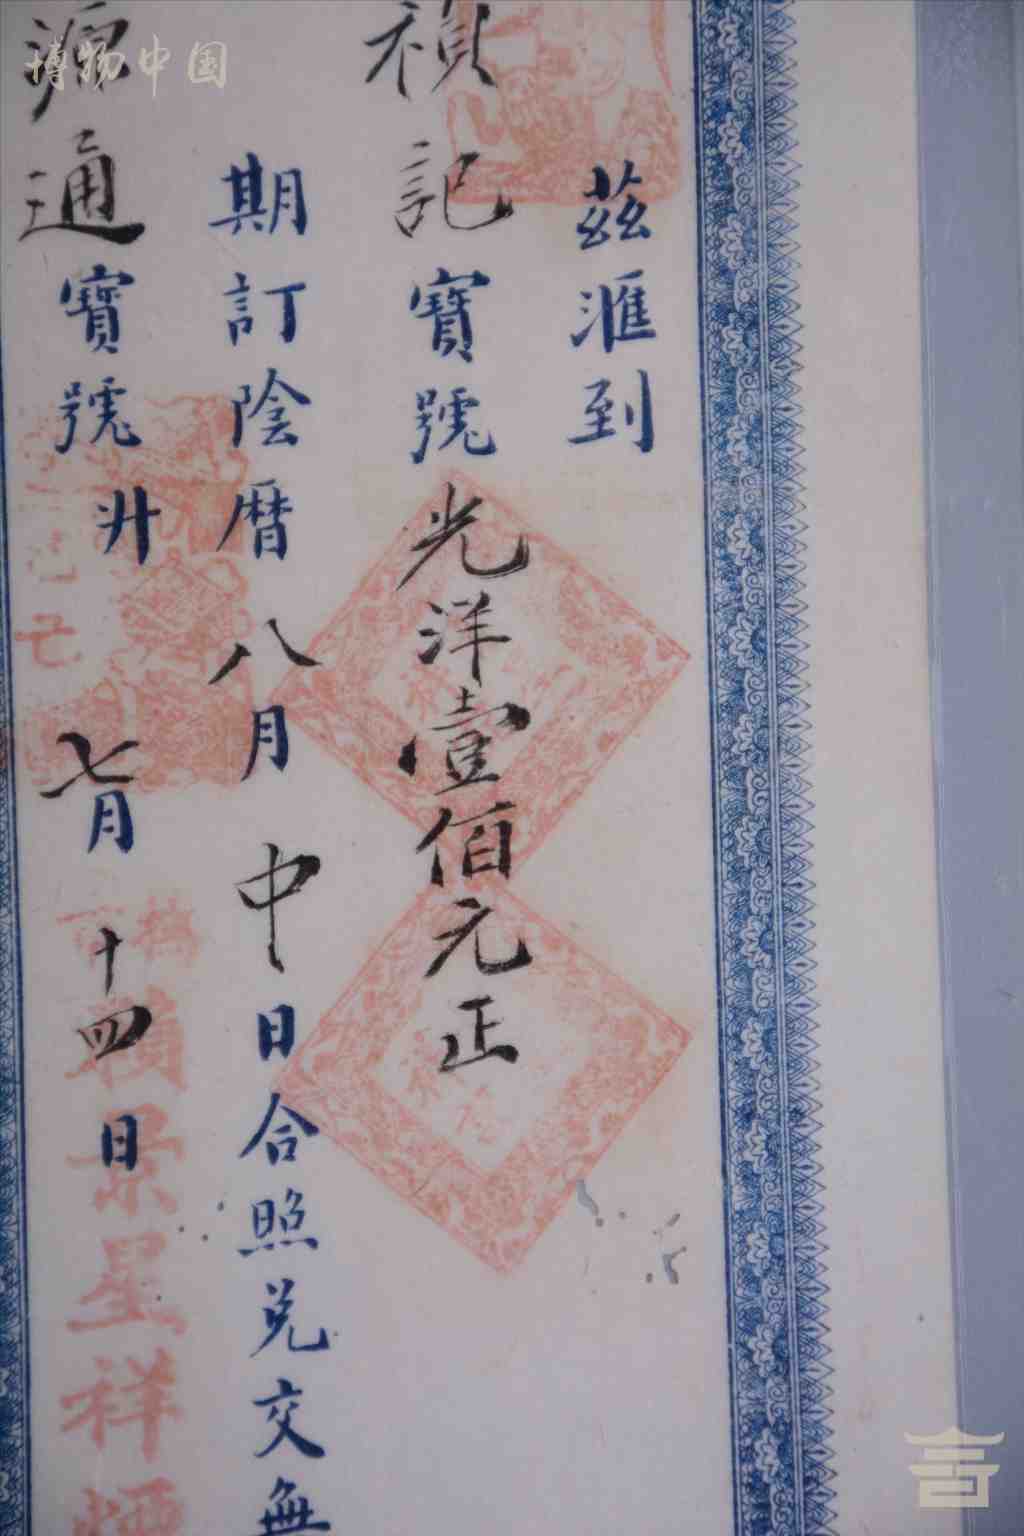 茲滙到
禎記寶號光洋壹佰元正
期訂陰曆八月中日合照兑交無
源通寶號廾七月十四日
賴景星祥
博物中国